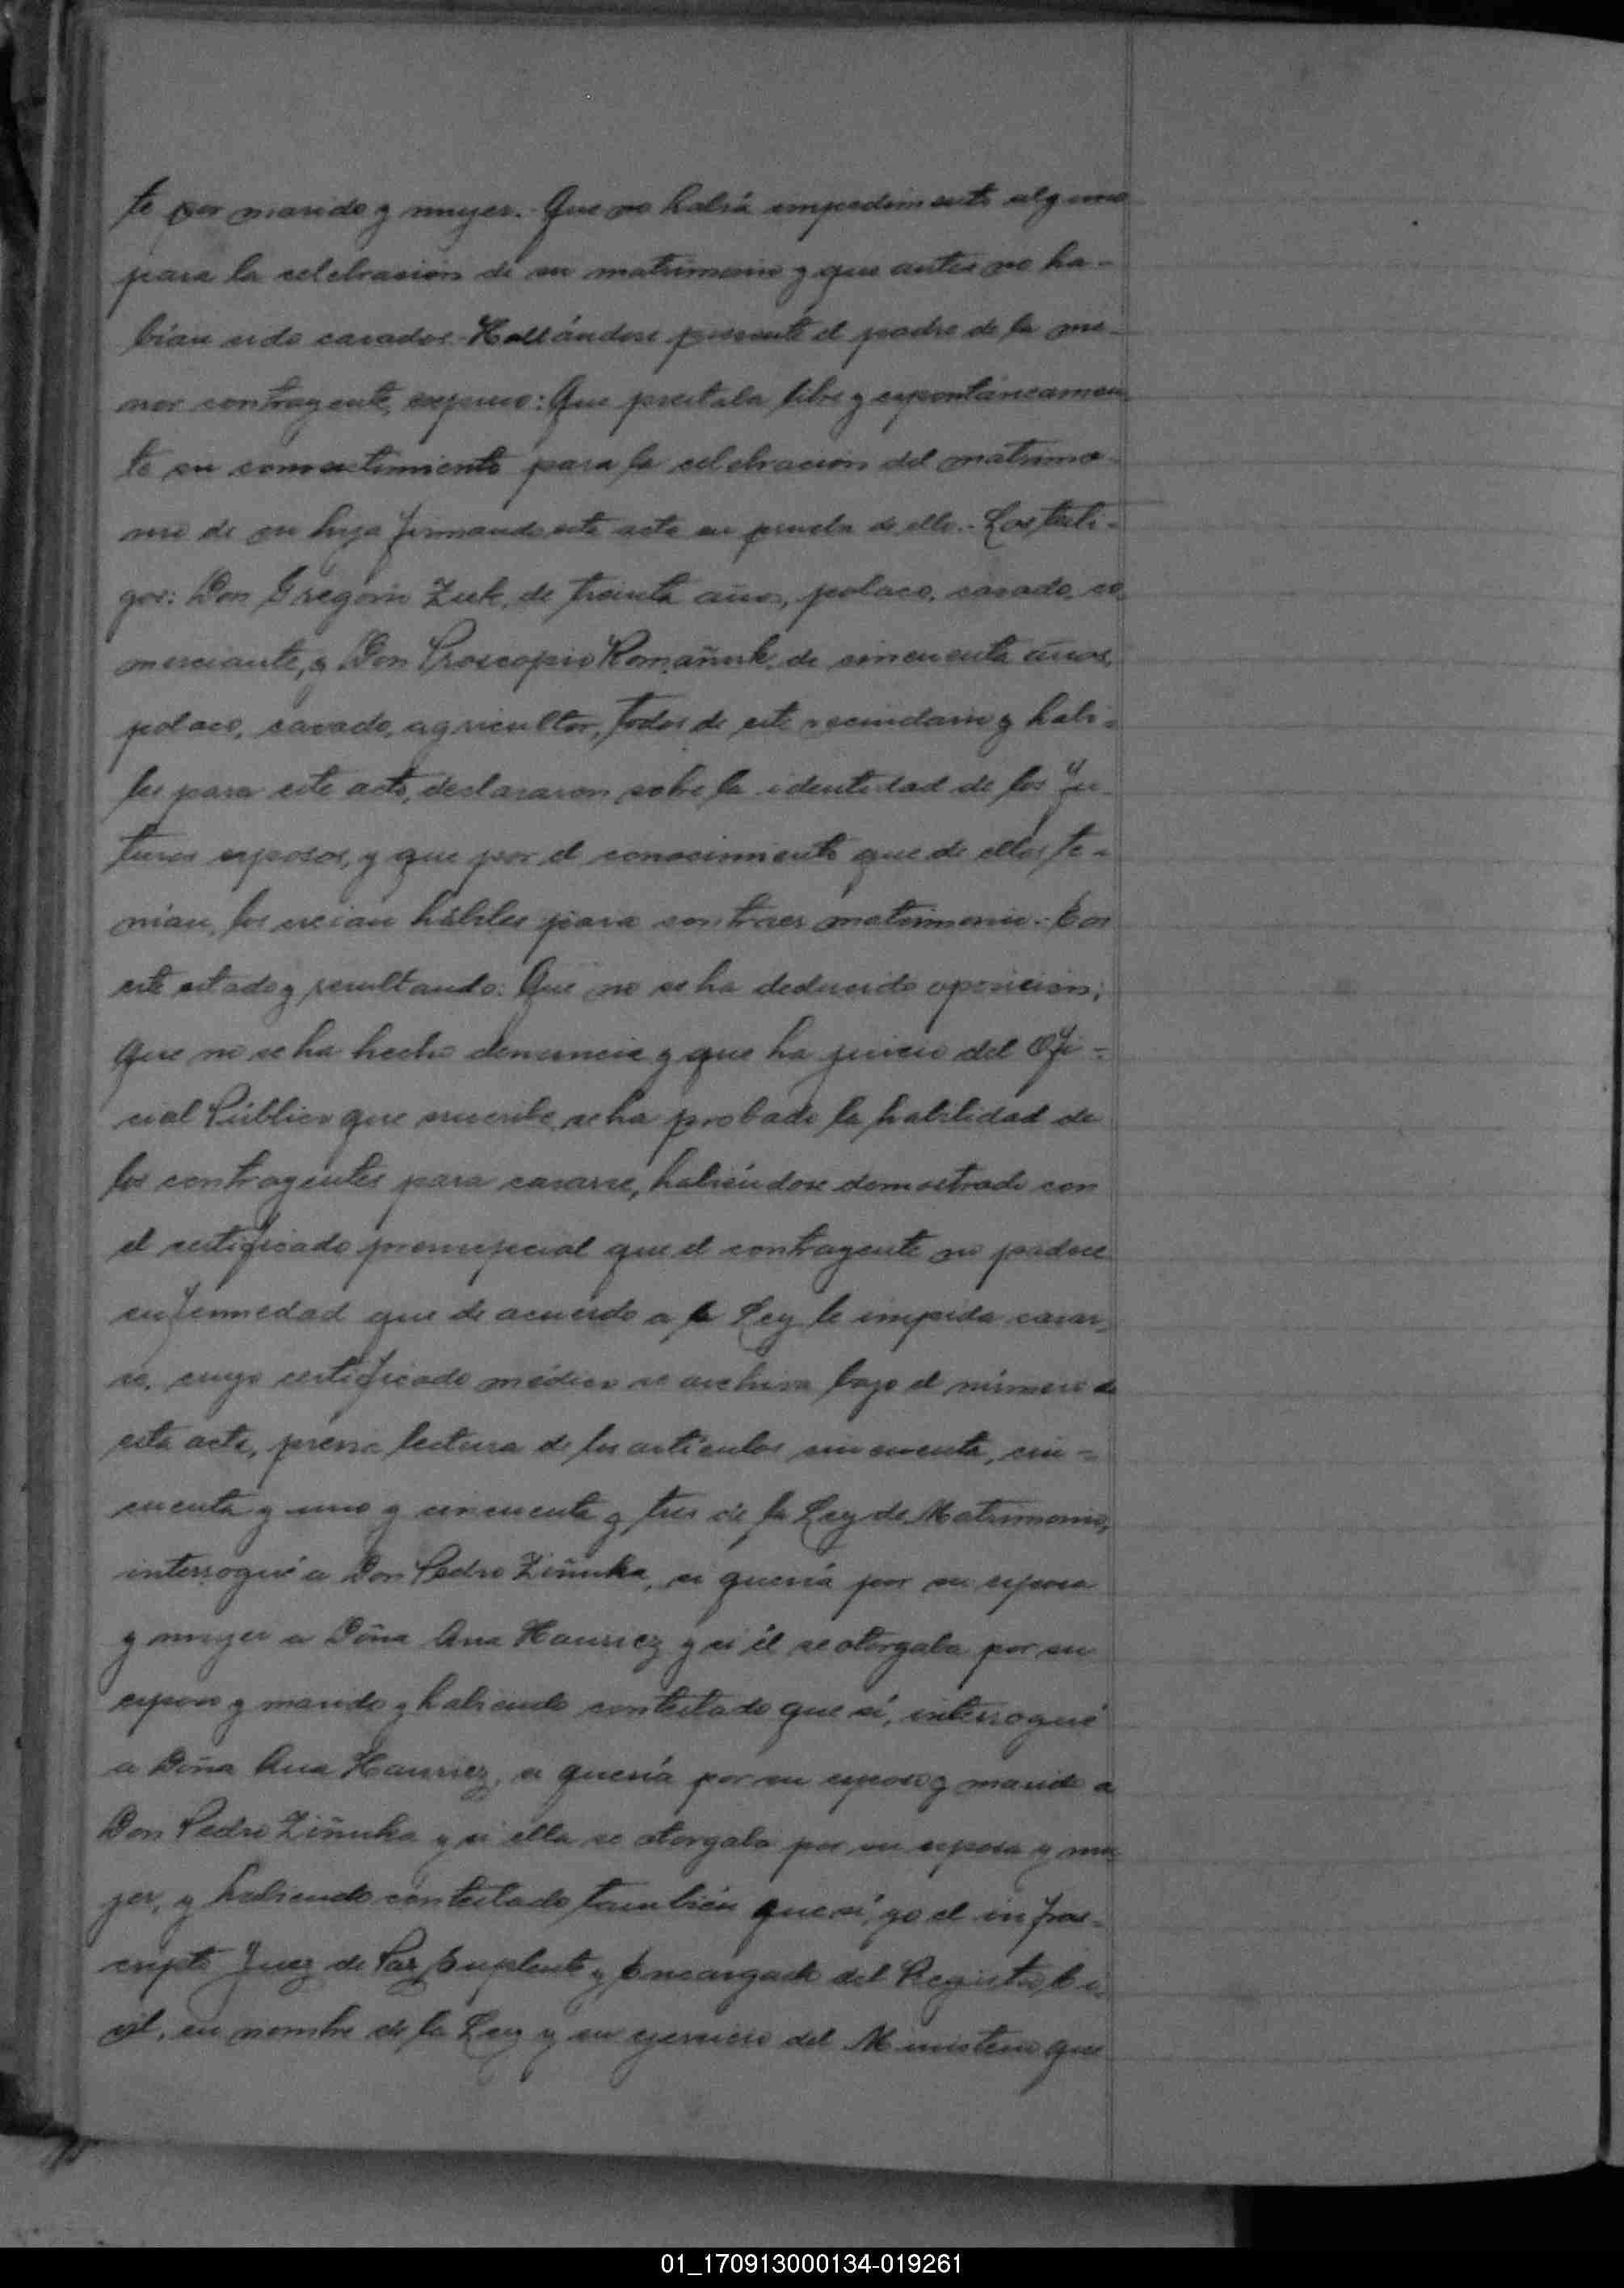 te por marido y mujer.- Que no había impedimento alguno
para la celebración de su matrimonio y que antes no ha-
bían sido casados.- Hallándose presente el padre de la me-
nor contrayente, expuso: Que prestaba libre y espontáneamen-
te su consentimiento para la celebración del matrimo-
nio de su hija firmando esta acta en prueba de ello.- Los testi-
gos: Don Gregorio Zuk, de treinta años, polaco, casado, co-
merciante, y Don Proscopio Romañuk, de cincuenta años,
polaco, casado, agricultor, todos de este vecindario y hábi-
les para este acto, declararon sobre la identidad de los fu-
turos esposos, y que por el conocimiento que de ellos te-
nían, los creían hábiles para contraer matrimonio.- En
este estado y resultando: Que no se ha deducido oposición;
Que no se ha hecho denuncia y que ha juicio del Ofi-
cial Público que suscribe, se ha probado la habilidad de
los contrayentes para casarse, habiéndose demostrado con
el certificado prenupcial que el contrayente no padece
enfermedad que de acuerdo a la Ley le impida casar-
se, cuyo certificado médico se archiva bajo el número de
esta acta, previa lectura de los artículos cincuenta, cin-
cuenta y uno y cincuenta y tres de la Ley de Matrimonio,
interrogué a Don Pedro Ziñuka, si quería por su esposa
y mujer a Doña Ana Hauricz y si él se otorgaba por su
esposo y marido y habiendo contestado que sí, interrogué
a Doña Ana Hauricz, si quería por su esposo y marido a
Don Pedro Ziñuka y si ella se otorgaba por su esposa y mu-
jer, y habiendo contestado también que sí, yo el infras-
cripto Juez de Paz Suplente y Encargado del Registro Ci-
vil, en nombre de la Ley y en ejercicio del Ministerio que
01_170913000134-019261